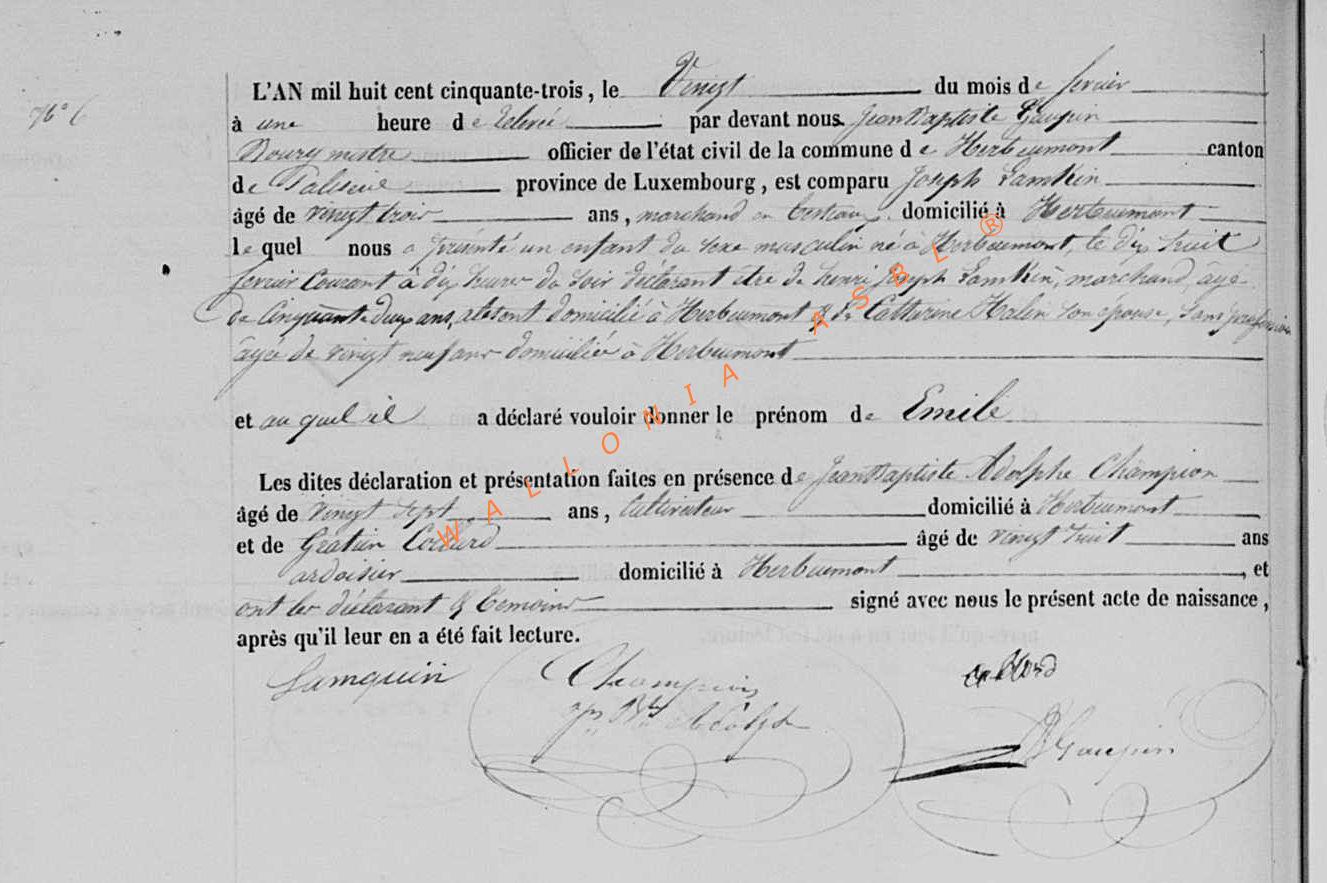 N° 6
L'AN mil huit cent cinquante-trois, le Vingt du mois de fevrier
à une heure de relevée par devant nous Jean Baptiste Gaupin
Bourgmestre officier de l'état civil de la commune de Herbeumont canton
de Paliseul province de Luxembourg, est comparu Joseph Lamkin
âgé de vingt trois ans, marchand en bestiaux domicilié à Herbeumont
lequel nous a présenté un enfant du sexe masculin né à Herbeumont, le dix huit
fevrier courant à dix heures du soir déclarant être de henri Joseph Lamkin, marchand, âgé
de cinquante deux ans, domicilié à Herbeumont & de Catherine son épouse, sans profession
âgée de vingt neuf ans domiciliée à Herbeumont
et au quel il a déclaré vouloir donner le prénom de Emile
Les dites déclaration et présentation faites en présence de Jean Baptiste Adolphe Champion
âgé de vingt sept ans, Cultivateur domicilié à Herbeumont
et de Gratien Collard âgé de vingt huit ans
ardoisier domicilié à Herbeumont, et
ont les déclarant & temoins signé avec nous le présent acte de naissance,
après qu'il leur en a été fait lecture.
Lamquin Champion collard
Jn Bte Adolph
JB Gaupin
WALLONIA ASBL ®